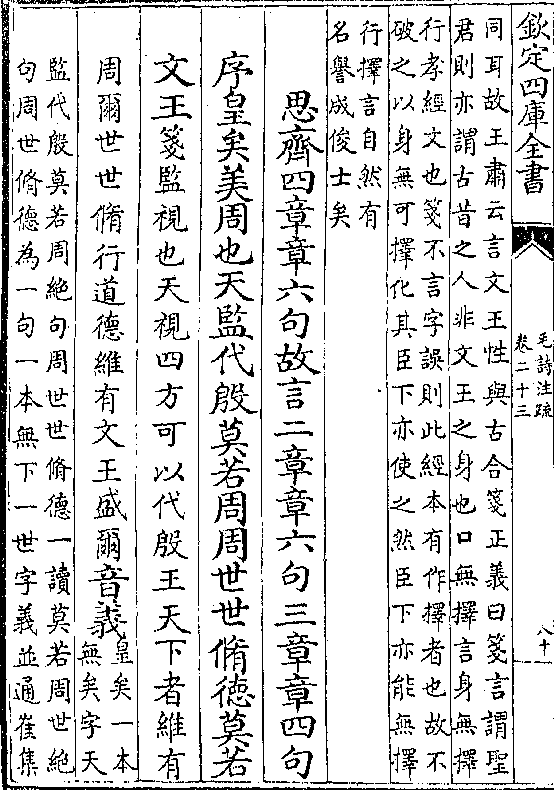 欽定四庫全書
毛詩注疏
卷二十三
八十
同耳故王肅云言文王性與古合箋正義曰箋言謂聖
君則亦謂古昔之人非文王之身也口無擇言身無擇
行孝經文也箋不言字誤則此經本有作擇者也故不
破之以身無可擇化其臣下亦使之然臣下亦能無擇
行擇言自然有
名譽成俊士矣
思齊四章章六句故言二章章六句三章章四句
序皇矣美周也天監代殷莫若周周世世脩德莫若
文王箋監視也天視四方可以代殷王天下者維有
周爾世世脩行道德維有文王盛爾音義
皇矣一本
無矣字天
監代殷莫若周絶句周世世脩德一讀莫若周世絶
句周世脩德為一句一本無下一世字義並通崔集